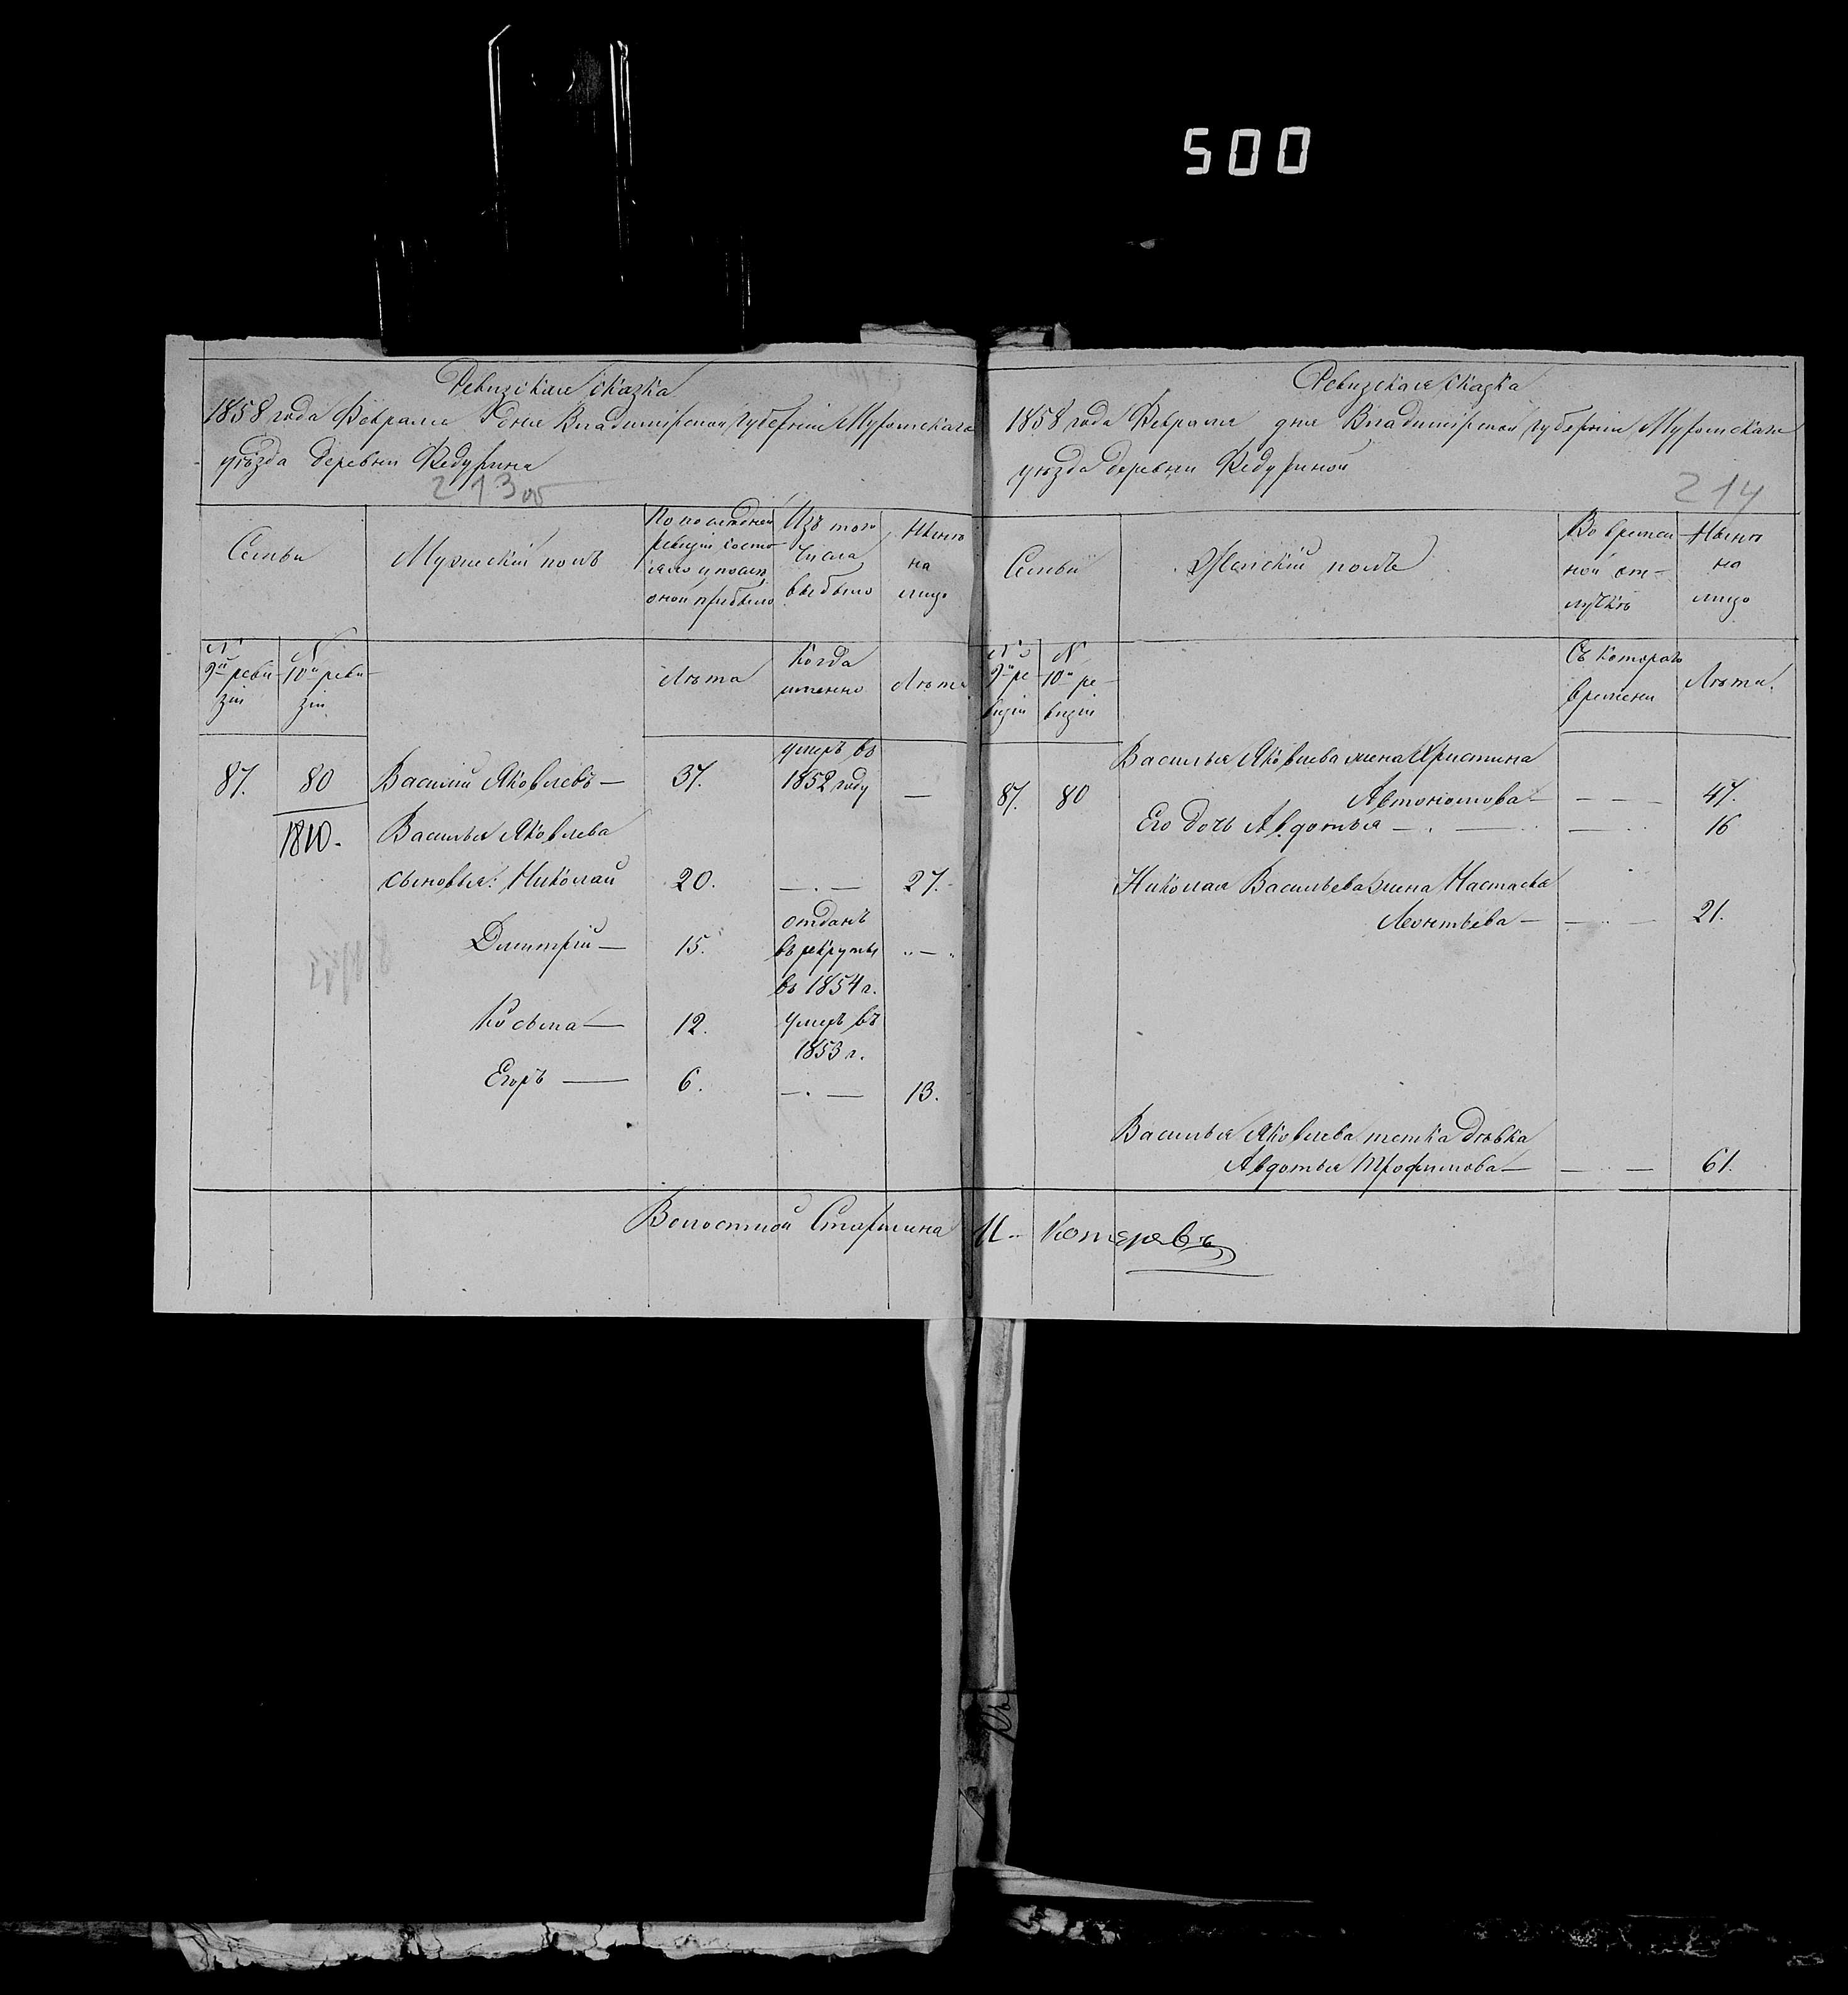 500
Ревизская сказка
1858 года Февраля дня Владимирской губернiи Муромскаго
уѣзда деревни Федурина
213 об
Семьи
Мужескiй полъ
По последней ревизiи состояло и послѣ оной прибыло
Изъ того числа выбыло
Нынѣ на лицо
№ 9й ревизiи
№ 10й ревизiи
Лѣта
Когда именно
Лѣта
87. 80 Василiй Яковлевъ — 37. умеръ въ 1852 году —
1810. Василья Яковлева
сыновья: Николай 20. —.— 27.
Дмитрiй — 15. отданъ въ рекруты въ 1854 г. „—„
Косьма — 12. умеръ въ 1853 г.
Егоръ — 6. —.— 13.
Волостной Старшина
Ревизская сказка
1858 года Февраля дня Владимирской губернiи Муромскаго
уѣзда деревни Федуриной
214
Семьи
Женскiй полъ
Во временной отлучкѣ
Нынѣ на лицо
№ 9й ревизiи
№ 10й ревизiи
Съ котораго времени
Лѣта.
Василья Яковлева жена Христина
87. 80 Автономова — — — — 47.
Его дочь Авдотья —.— — 16
Николая Васильева жена Настасья
Леонтьева — — — 21.
Василья Яковлева тетка дѣвка
Авдотья Трофимова — — — 61.